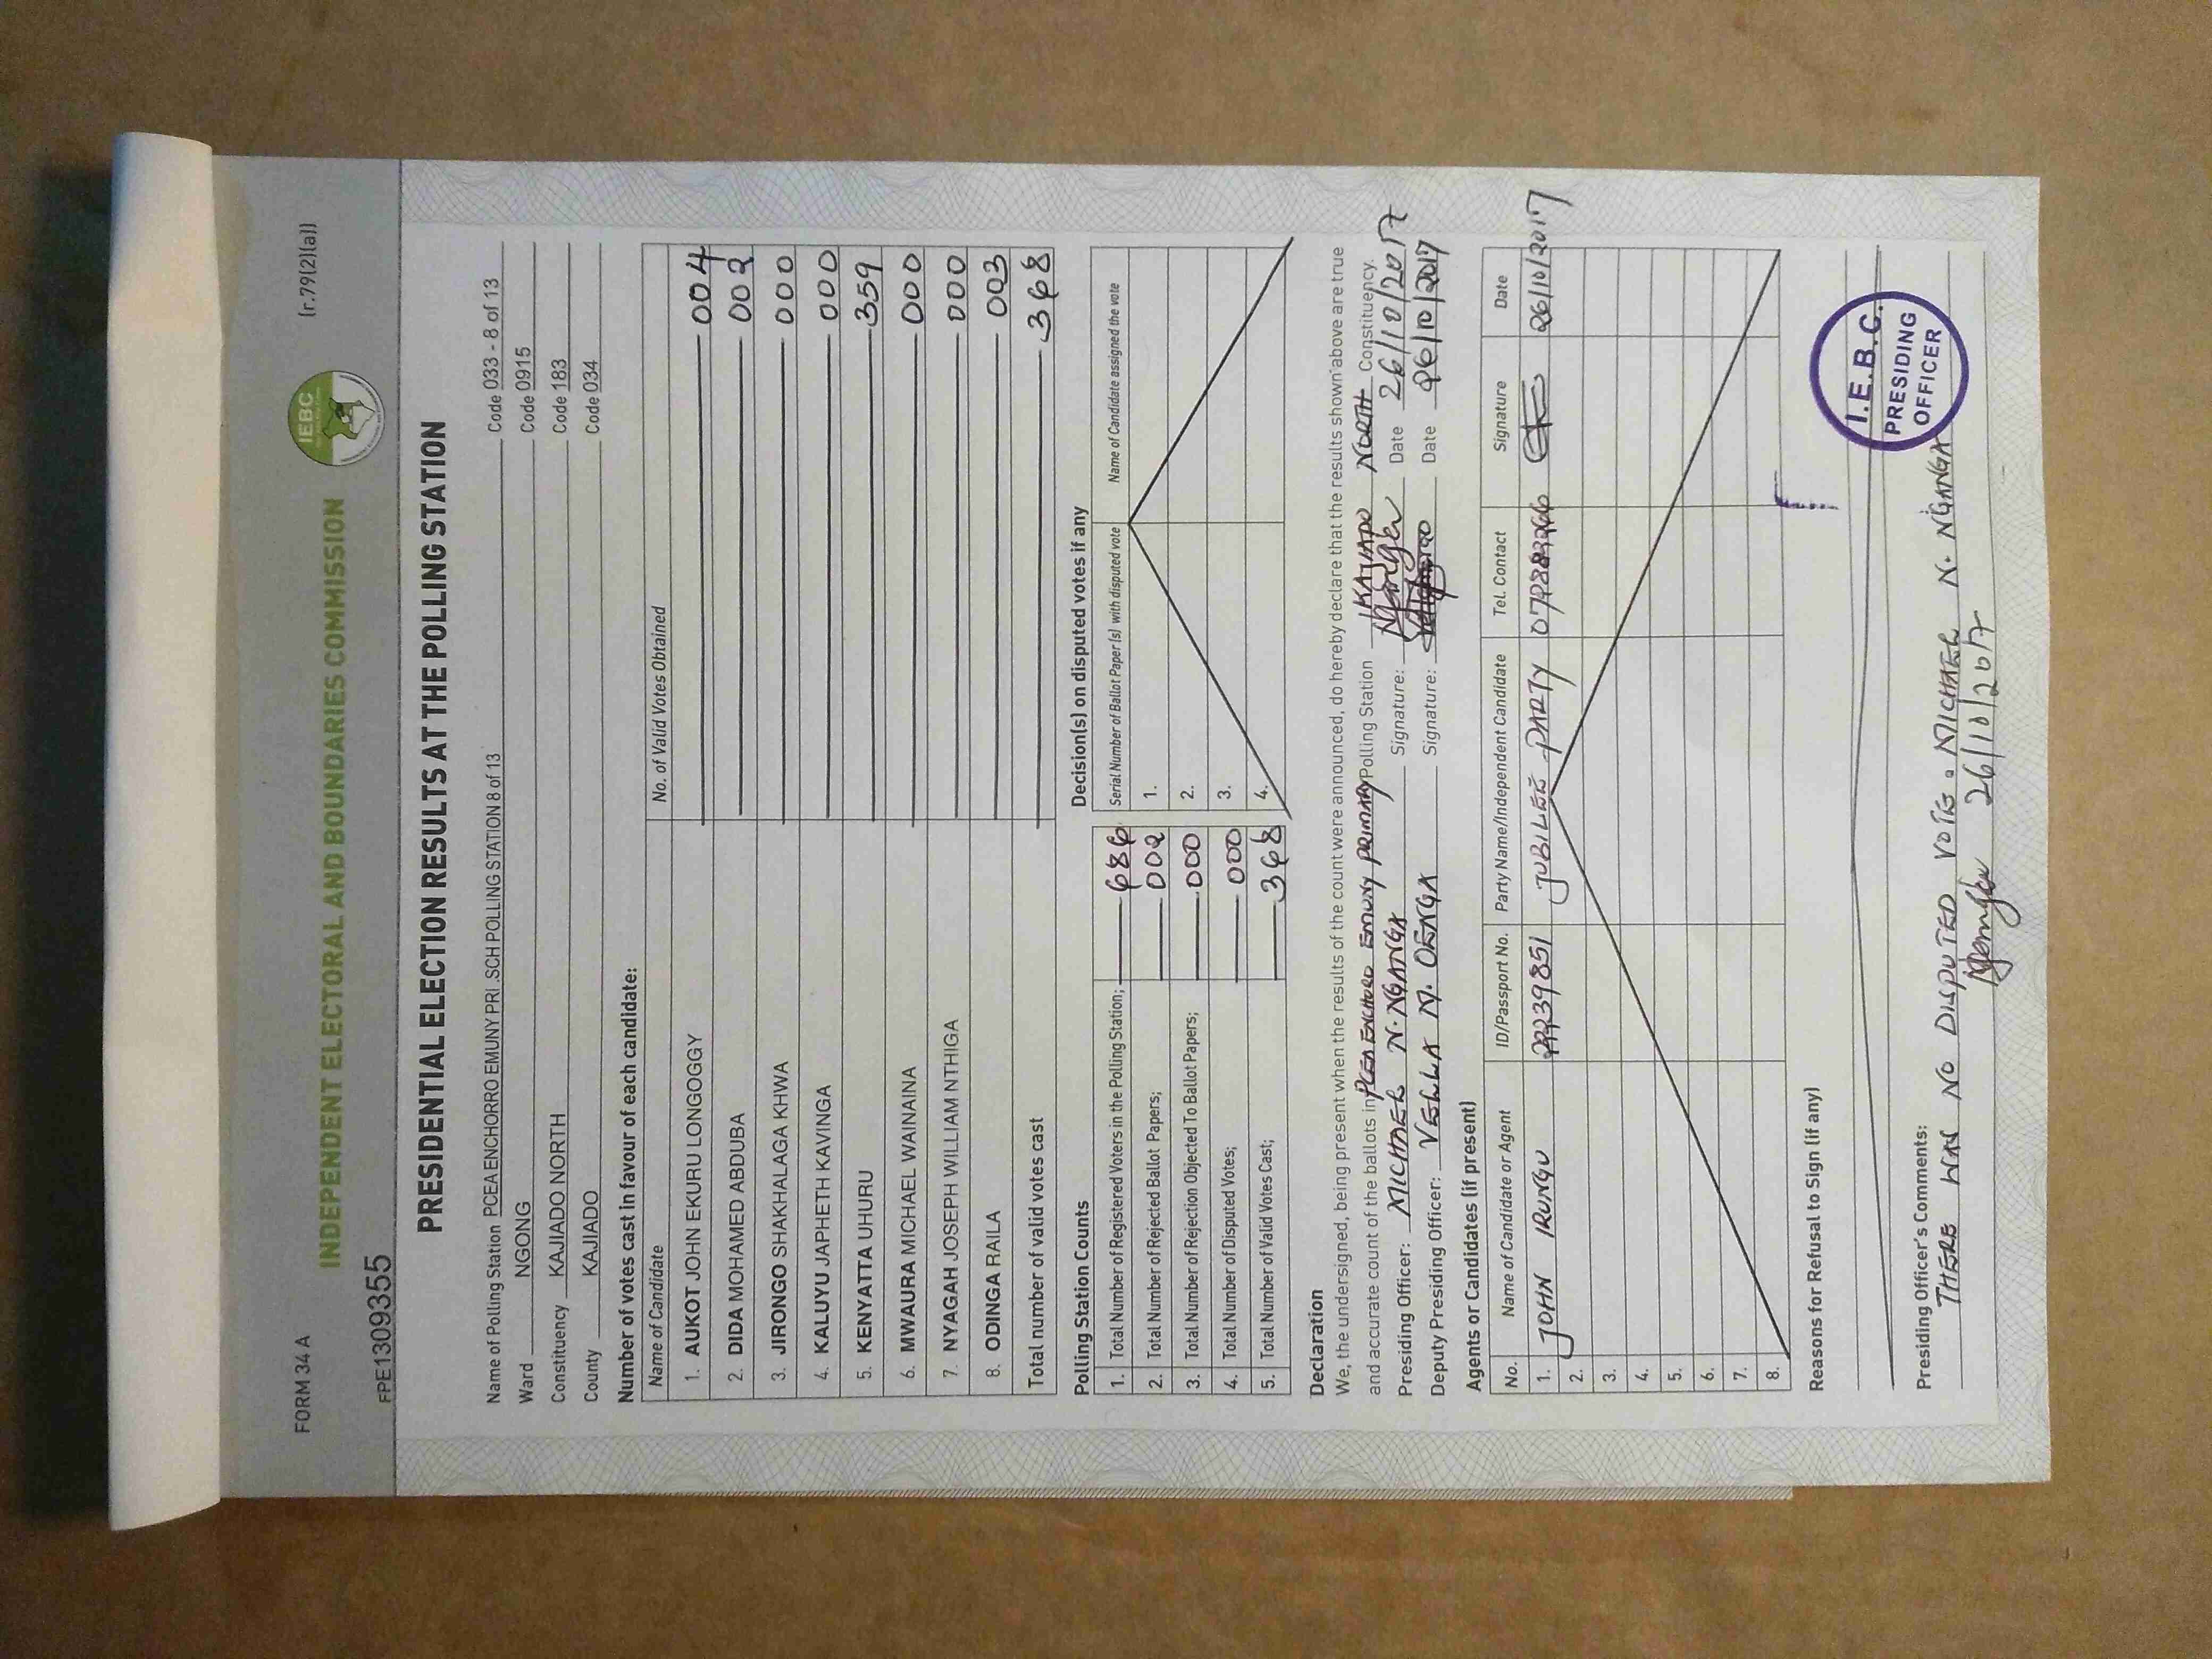 FORM 34 A
(r.79(2)(a))
INDEPENDENT ELECTORAL AND BOUNDARIES COMMISSION
IEBC
FPE1309355
PRESIDENTIAL ELECTION RESULTS AT THE POLLING STATION
Name of Polling Station PCEA ENCHORRO EMUNY PRI .SCH POLLING STATION 8 of 13 Code 033 - 8 of 13
Ward NGONG Code 0915
Constituency KAJIADO NORTH Code 183
County KAJIADO Code 034
Number of votes cast in favour of each candidate:
Name of Candidate No. of Valid Votes Obtained
1. AUKOT JOHN EKURU LONGOGGY 004
2. DIDA MOHAMED ABDUBA 002
3. JIRONGO SHAKHALAGA KHWA 000
4. KALUYU JAPHETH KAVINGA 000
5. KENYATTA UHURU 359
6. MWAURA MICHAEL WAINAINA 000
7. NYAGAH JOSEPH WILLIAM NTHIGA 000
8. ODINGA RAILA 003
Total number of valid votes cast 368
Polling Station Counts
1. Total Number of Registered Voters in the Polling Station; 686
2. Total Number of Rejected Ballot Papers; 002
3. Total Number of Rejection Objected To Ballot Papers; 000
4. Total Number of Disputed Votes; 000
5. Total Number of Valid Votes Cast; 368
Decision(s) on disputed votes if any
Serial Number of Ballot Paper (s) with disputed vote Name of Candidate assigned the vote
1.
2.
3.
4.
Declaration
We, the undersigned, being present when the results of the count were announced, do hereby declare that the results shown above are true
and accurate count of the ballots in PCEA ENCHORO EMUNY PRIMARY Polling Station KAJIADO NORTH Constituency.
Presiding Officer: MICHAEL N. NGANGA Signature: Date 26/10/2017
Deputy Presiding Officer: VELLA M. OENGA Signature: Date 26/10/2017
Agents or Candidates (if present)
No. Name of Candidate or Agent ID/Passport No. Party Name/Independent Candidate Tel. Contact Signature Date
1. JOHN IRUNGU 22239851 JUBILEE PARTY 26/10/2017
2.
3.
4.
5.
6.
7.
8.
Reasons for Refusal to Sign (if any)
I.E.B.C.
PRESIDING
OFFICER
Presiding Officer's Comments:
THERE WAS NO DISPUTED VOTE. MICHAEL N. NGANGA
26/10/2017